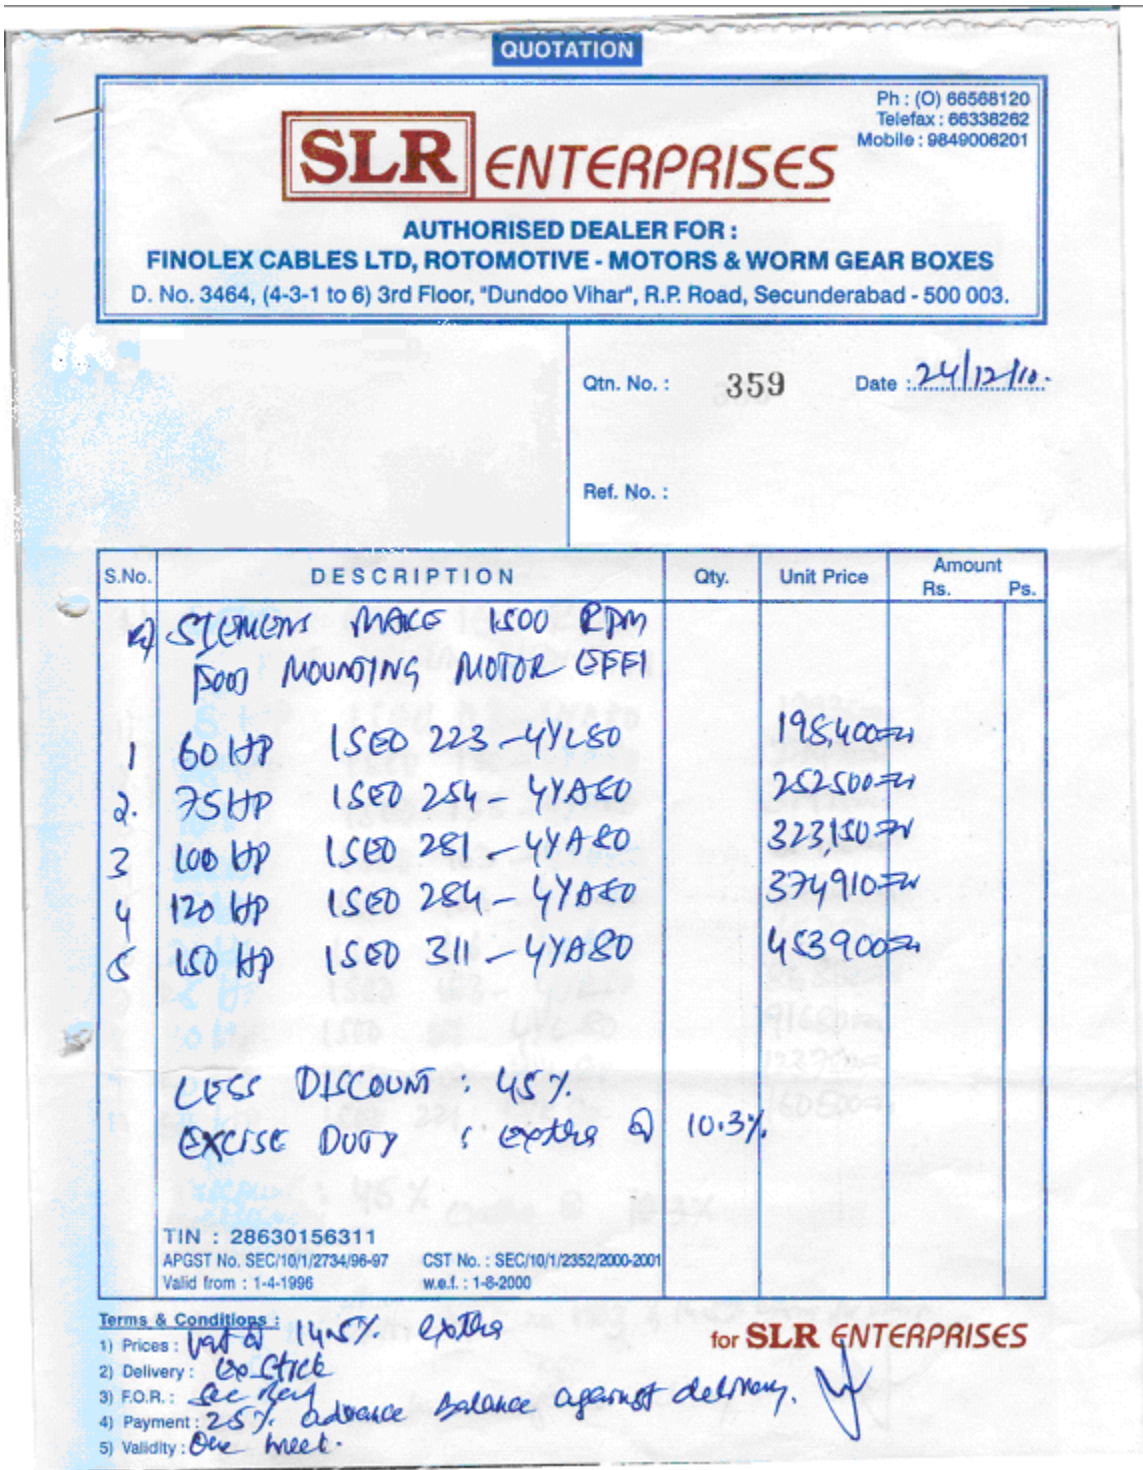 QUOTATION
Ph : (O) 66568120
Telefax : 66338262
Mobile : 9849006201
SLR ENTERPRISES
AUTHORISED DEALER FOR :
FINOLEX CABLES LTD, ROTOMOTIVE - MOTORS & WORM GEAR BOXES
D. No. 3464, (4-3-1 to 6) 3rd Floor, "Dundoo Vihar", R.P. Road, Secunderabad - 500 003.
Qtn. No. : 359 Date : 24/12/10.
Ref. No. :
S.No. DESCRIPTION Qty. Unit Price Amount
Rs. Ps.
SIEMENS MAKE 1500 RPM
MOUNTING MOTOR EFF1
1 60 HP 1SE0 223-4YL80 195,400=00
2. 75 HP 1SE0 254-4YA80 252500=00
3 100 HP 1SE0 281-4YA80 323,150=00
4 120 HP 1SE0 284-4YA80 374910=00
5 150 HP 1SE0 311-4YA80 453900=00
LESS DISCOUNT : 45%
EXCISE DUTY : extra @ 10.3%
TIN : 28630156311
APGST No. SEC/10/1/2734/96-97 CST No. : SEC/10/1/2352/2000-2001
Valid from : 1-4-1996 w.e.f. : 1-8-2000
Terms & Conditions :
for SLR ENTERPRISES
1) Prices : Vat @ 14.5% extra
2) Delivery : Ex Stock
3) F.O.R. : Sec Bad
4) Payment : 25% advance Balance against delivery.
5) Validity : One week.